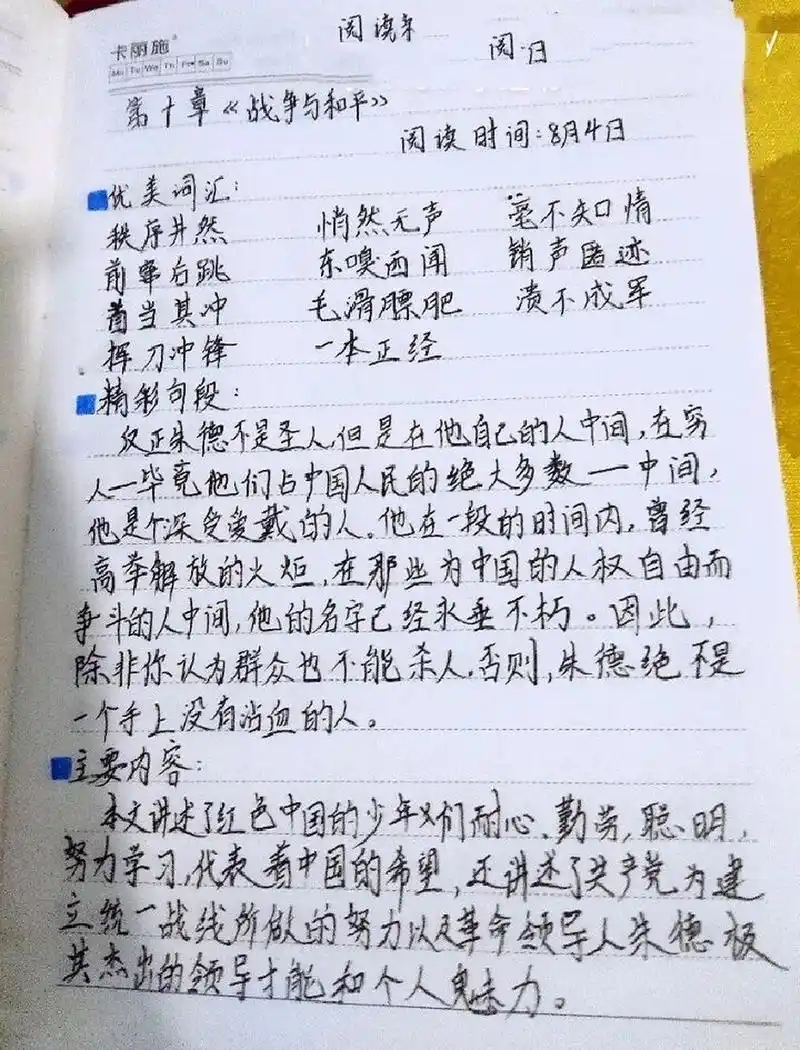 阅读
卡丽施
Mo Tu We Th Fr Sa Su
阅·日
第十章《战争与和平》
阅读时间:8月4日
优美词汇:
秩序井然 悄然无声 毫不知情
前窜后跳 东嗅西闻 销声匿迹
首当其冲 毛滑膘肥 溃不成军
挥刀冲锋 一本正经
精彩句段:
反正朱德不是圣人,但是在他自己的人中间,在穷
人一毕竟他们占中国人民的绝大多数一中间,
他是个深受爱戴的人。他在一段的时间内,曾经
高举解放的火炬,在那些为中国的人权自由而
争斗的人中间,他的名字已经永垂不朽。因此,
除非你认为群众也不能杀人,否则,朱德绝不是
一个手上没有沾血的人。
主要内容:
本文讲述了红色中国的少年们耐心、勤劳,聪明,
努力学习,代表着中国的希望,还讲述了共产党为建
立统一战线所做的努力以及革命领导人朱德极
其杰出的领导才能和个人魅力。